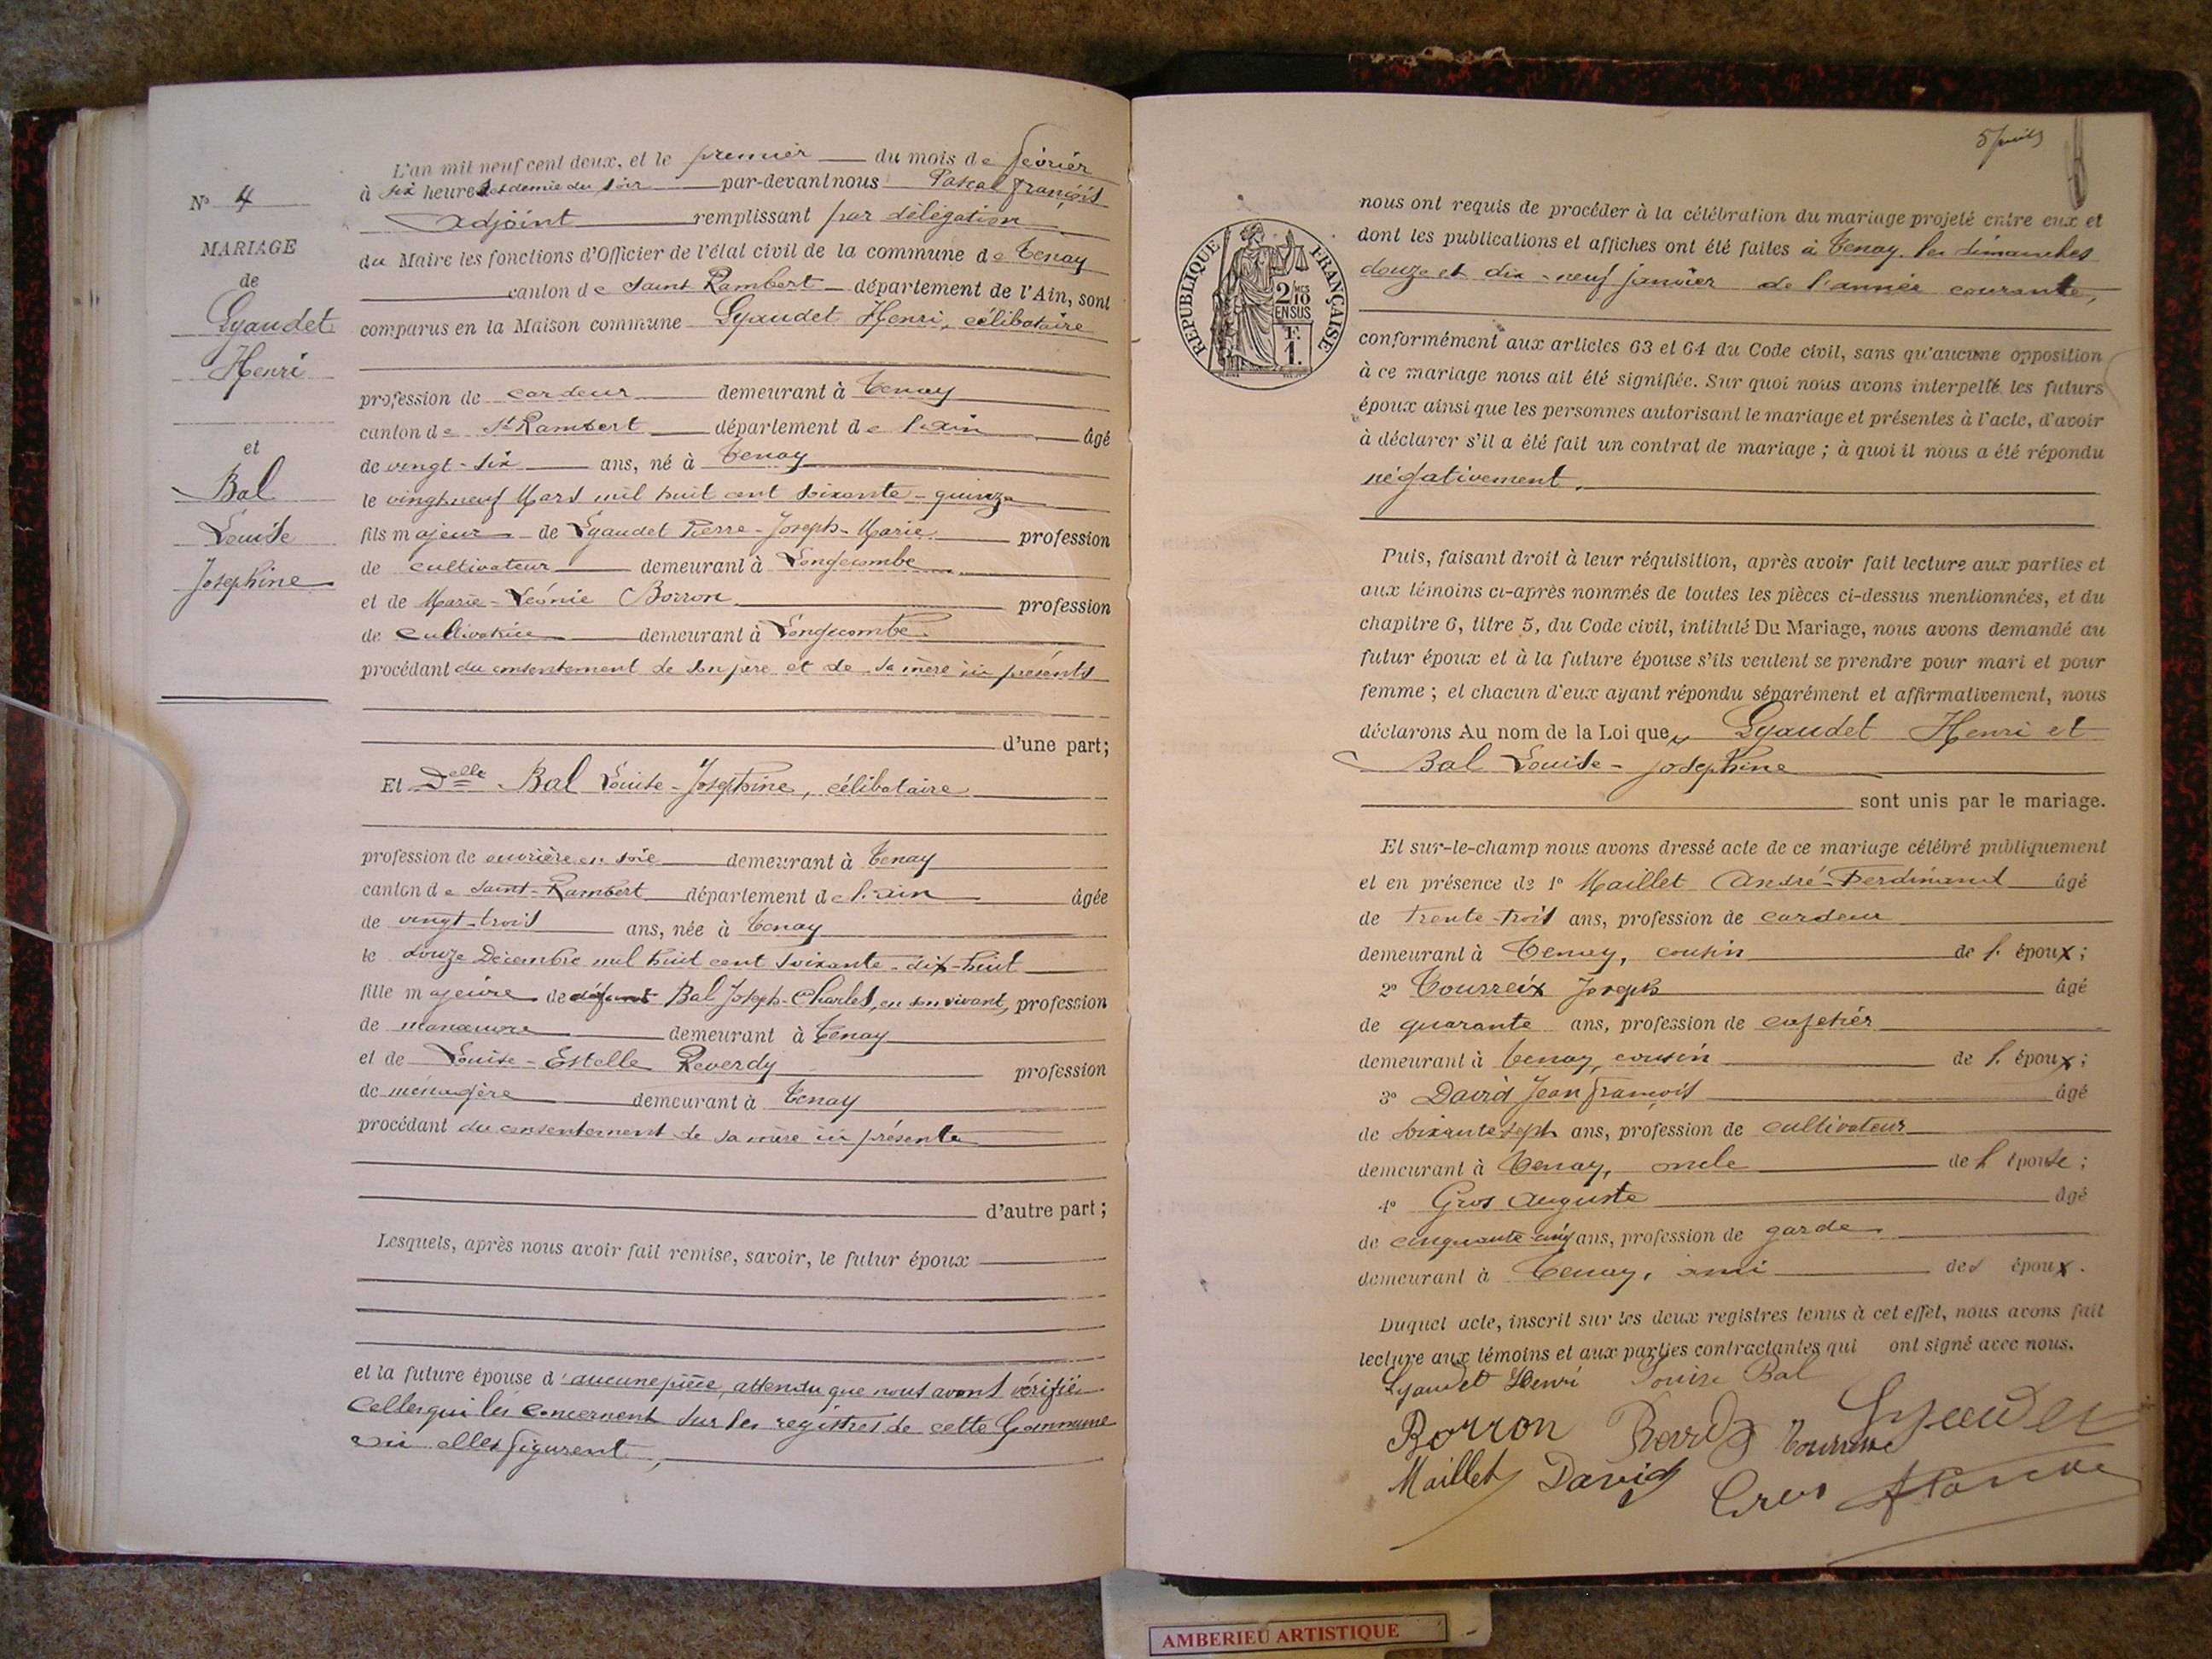 L'an mil neuf cent deux, et le premier du mois de février
à six heures et demie du soir par-devant nous Pascal François
Adjoint remplissant par délégation
du Maire les fonctions d'Officier de l'état civil de la commune de Tenay
canton de Saint Rambert département de l'Ain, sont
comparus en la Maison commune Lyaudet Henri, célibataire
profession de cardeur demeurant à Tenay
canton de St Rambert département de l'Ain âgé
de vingt-six ans, né à Tenay
le vingt neuf Mars mil huit cent soixante-quinze
fils majeur de Lyaudet Pierre-Joseph-Marie profession
de cultivateur demeurant à Longecombe
et de Marie-Léonie Borron profession
de cultivatrice demeurant à Longecombe
procédant du consentement de son père et de sa mère ici présents
d'une part;
Et Delle Bal Louise-Josephine, célibataire
profession de ouvrière en soie demeurant à Tenay
canton de Saint-Rambert département de l'Ain âgée
de vingt-trois ans, née à Tenay
le douze Décembre mil huit cent soixante-dix-huit
fille majeure de défunt Bal Joseph-Charles, en son vivant, profession
de manœuvre demeurant à Tenay
et de Louise-Estelle Reverdy profession
de ménagère demeurant à Tenay
procédant du consentement de sa mère ici présente
d'autre part;
Lesquels, après nous avoir fait remise, savoir, le futur époux
et la future épouse d'aucune pièce, attendu que nous avons vérifié
celles qui les concernent sur les registres de cette Commune
où elles figurent,
No 4
MARIAGE
de
Lyaudet
Henri
et
Bal
Louise
Josephine
REPUBLIQUE FRANÇAISE
2/10 MES
EN SUS
F.
1.
nous ont requis de procéder à la célébration du mariage projeté entre eux et
dont les publications et affiches ont été faites à Tenay les dimanches
douze et dix-neuf janvier de l'année courante,
conformément aux articles 63 et 64 du Code civil, sans qu'aucune opposition
à ce mariage nous ait été signifiée. Sur quoi nous avons interpellé les futurs
époux ainsi que les personnes autorisant le mariage et présentes à l'acte, d'avoir
à déclarer s'il a été fait un contrat de mariage; à quoi il nous a été répondu
négativement.
Puis, faisant droit à leur réquisition, après avoir fait lecture aux parties et
aux témoins ci-après nommés de toutes les pièces ci-dessus mentionnées, et du
chapitre 6, titre 5, du Code civil, intitulé Du Mariage, nous avons demandé au
futur époux et à la future épouse s'ils veulent se prendre pour mari et pour
femme; et chacun d'eux ayant répondu séparément et affirmativement, nous
déclarons Au nom de la Loi que Lyaudet Henri et
Bal Louise-Josephine
sont unis par le mariage.
Et sur-le-champ nous avons dressé acte de ce mariage célébré publiquement
et en présence de 1o Maillet André-Ferdinand âgé
de trente-trois ans, profession de cardeur
demeurant à Tenay, cousin de l'époux;
2o Tourreix Joseph âgé
de quarante ans, profession de cafetier
demeurant à Tenay, cousin de l'époux;
3o David Jean François âgé
de soixante sept ans, profession de cultivateur
demeurant à Tenay, oncle de l'épouse;
4o Gros Auguste âgé
de cinquante-cinq ans, profession de garde
demeurant à Tenay, ami des époux.
Duquel acte, inscrit sur les deux registres tenus à cet effet, nous avons fait
lecture aux témoins et aux parties contractantes qui ont signé avec nous.
Lyaudet Henri Louise Bal
Borron Lyaudet
Maillet David Gros
AMBERIEU ARTISTIQUE